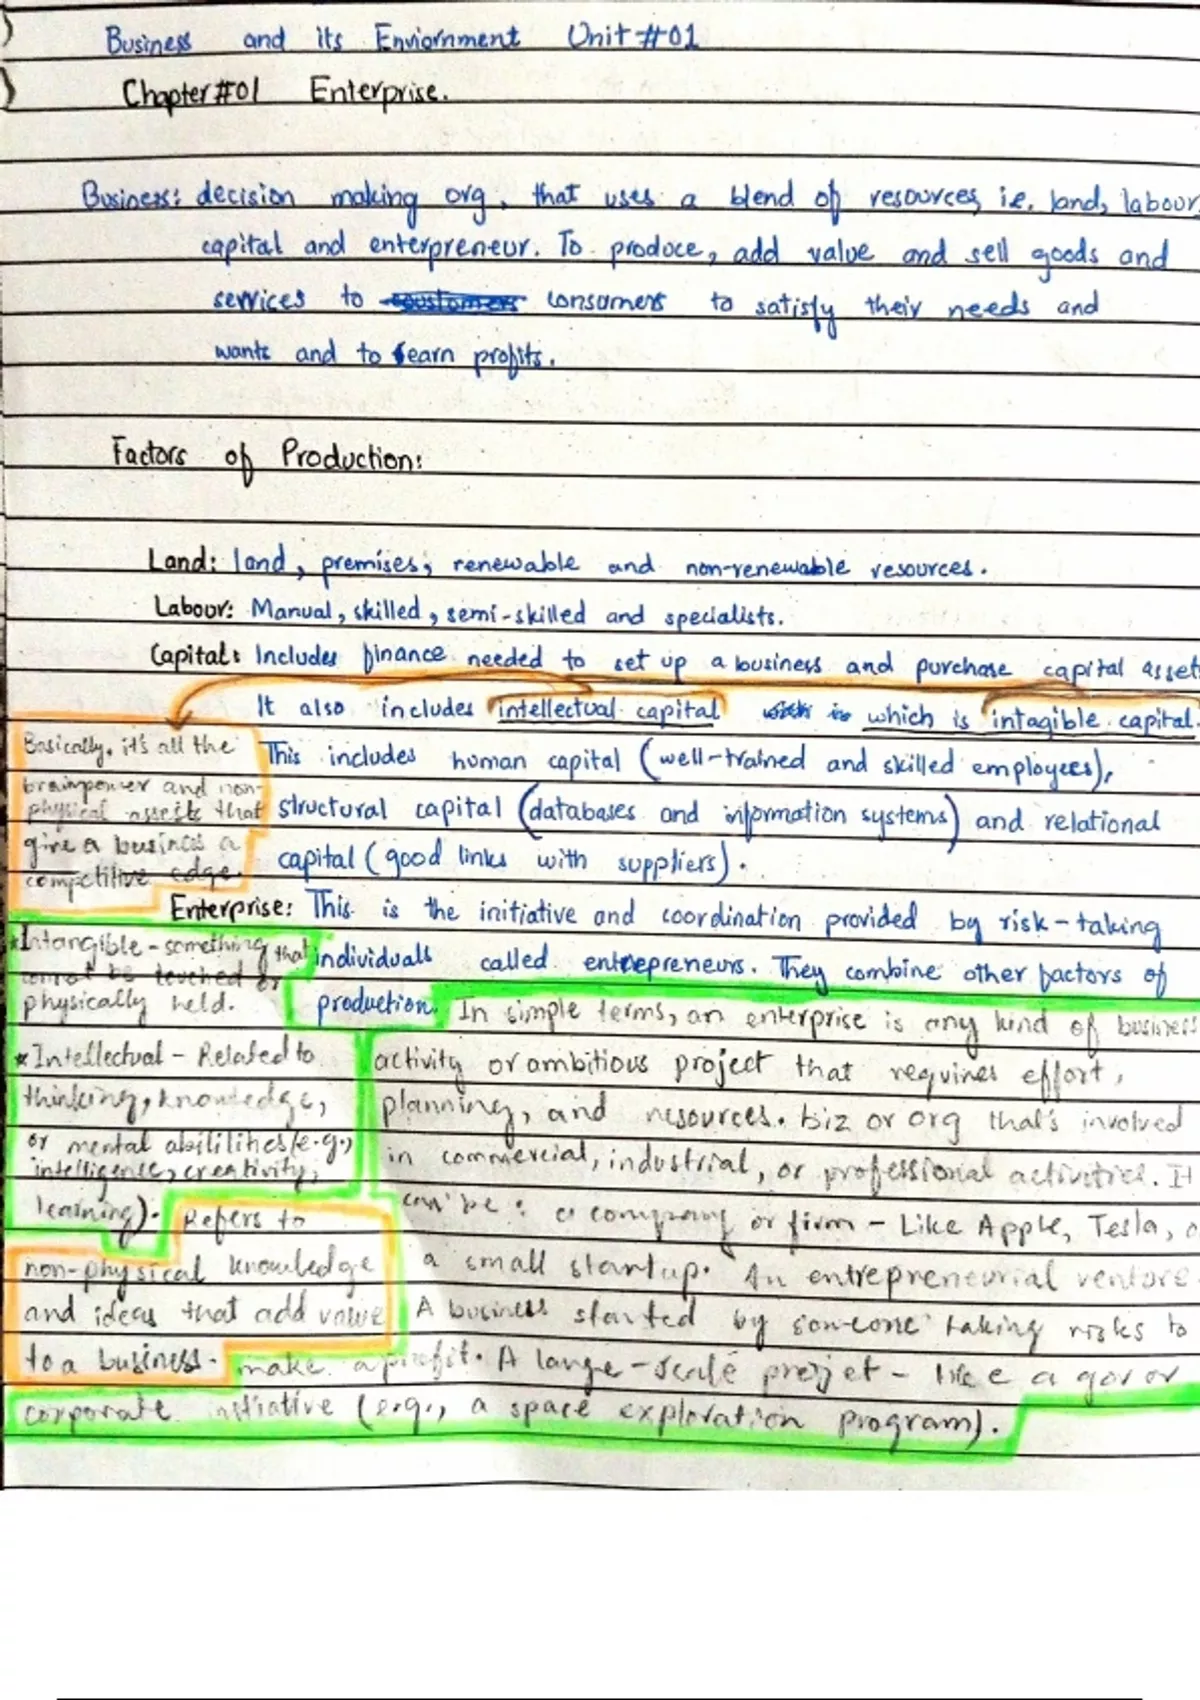 Business and its Enviornment Unit #01
Chapter #01 Enterprise.
Business: decision making org, that uses a blend of resources, i.e. land, labour,
capital and enterpreneur. To produce, add value and sell goods and
services to customers consumers to satisfy their needs and
wants and to earn profits.
Factors of Production:
Land: land, premises, renewable and non-renewable resources.
Labour: Manual, skilled, semi-skilled and specialists.
Capital: Includes finance needed to set up a business and purchase capital asset
It also includes intellectual capital which is intagible capital.
This includes human capital (well-trained and skilled employees),
structural capital (databases and information systems) and relational
capital (good links with suppliers).
Basically, it's all the
brainpower and non-
physical assets that
give a business a
competitive edge.
Enterprise: This is the initiative and coordination provided by risk-taking
individuals called entrepreneurs. They combine other factors of
production.
*Intangible - something that
cannot be touched or
physically held.
*Intellectual - Related to
thinking, knowledge,
or mental abilities (e.g.,
intelligence, creativity,
learning).
Refers to
non-physical knowledge
and ideas that add value
to a business.
In simple terms, an enterprise is any kind of business
activity or ambitious project that requires effort,
planning, and resources. biz or org that's involved
in commercial, industrial, or professional activities. It
can be: a company or firm - Like Apple, Tesla, o
a small startup. An entrepreneurial venture
A business started by someone taking risks to
make a profit. A large-scale projet - like a gov or
corporate initiative (e.g., a space exploration program).